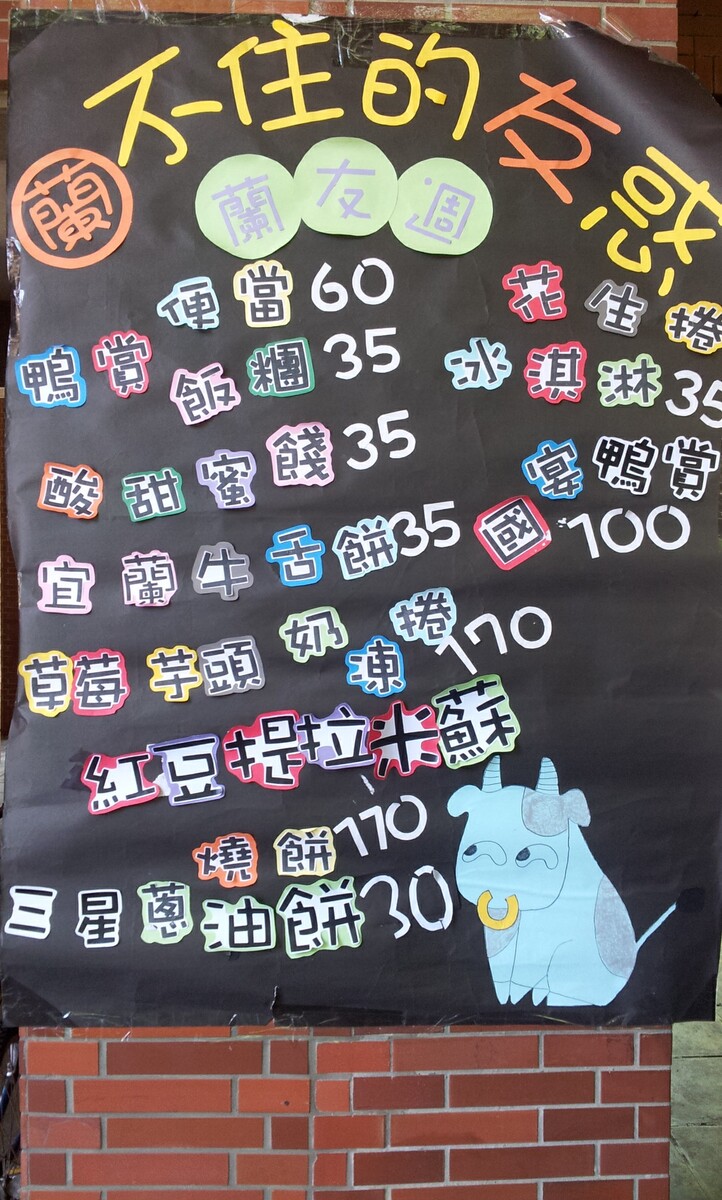 蘭不住的友惑
蘭友週
便當60
鴨賞飯糰35
酸甜蜜餞35
宜蘭牛舌餅35
草莓芋頭奶凍捲170
紅豆提拉米蘇
燒餅170
三星蔥油餅30
花生捲
冰淇淋35
宴鴨賞
國100